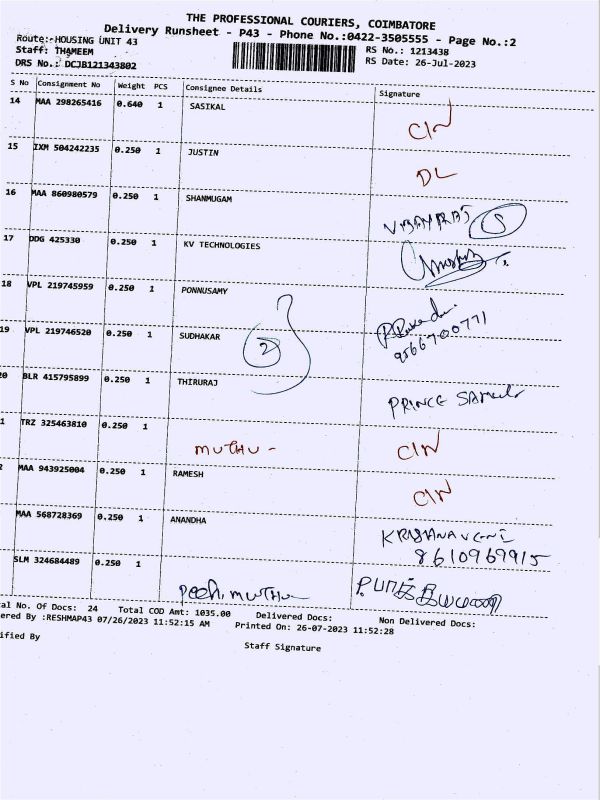 THE PROFESSIONAL COURIERS, COIMBATORE
Delivery Runsheet - P43 - Phone No.:0422-3505555 - Page No.:2
Route:-HOUSING UNIT 43
RS No.: 1213438
Staff: THAMEEM
RS Date: 26-Jul-2023
DRS No.: DCJB121343802
S No Consignment No Weight PCS Consignee Details Signature
14 MAA 298265416 0.640 1 SASIKAL
CIN
15 IXM 504242235 0.250 1 JUSTIN
DL
16 MAA 860980579 0.250 1 SHANMUGAM
S
17 DDG 425330 0.250 1 KV TECHNOLOGIES
18 VPL 219745959 0.250 1 PONNUSAMY
19 VPL 219746520 0.250 1 SUDHAKAR
2
9566700771
20 BLR 415795899 0.250 1 THIRURAJ
PRINCE
1 TRZ 325463810 0.250 1
MUTHU - CIN
2 MAA 943925004 0.250 1 RAMESH
CIN
MAA 568728369 0.250 1 ANANDHA
KRISHNAVENI
8610969915
SLM 324684489 0.250 1
al No. Of Docs: 24 Total COD Amt: 1035.00 Delivered Docs: Non Delivered Docs:
ered By :RESHMAP43 07/26/2023 11:52:15 AM Printed On: 26-07-2023 11:52:28
ified By
Staff Signature